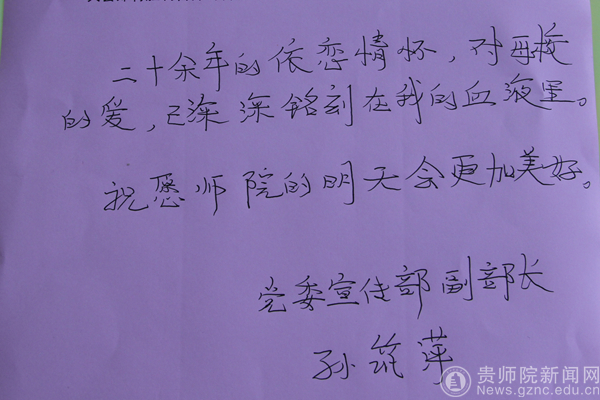 二十余年的依恋情怀，对母校
的爱，已深深铭刻在我的血液里。
祝愿师院的明天会更加美好。
党委宣传部副部长
孙筑萍
贵师院新闻网
News.gznc.edu.cn